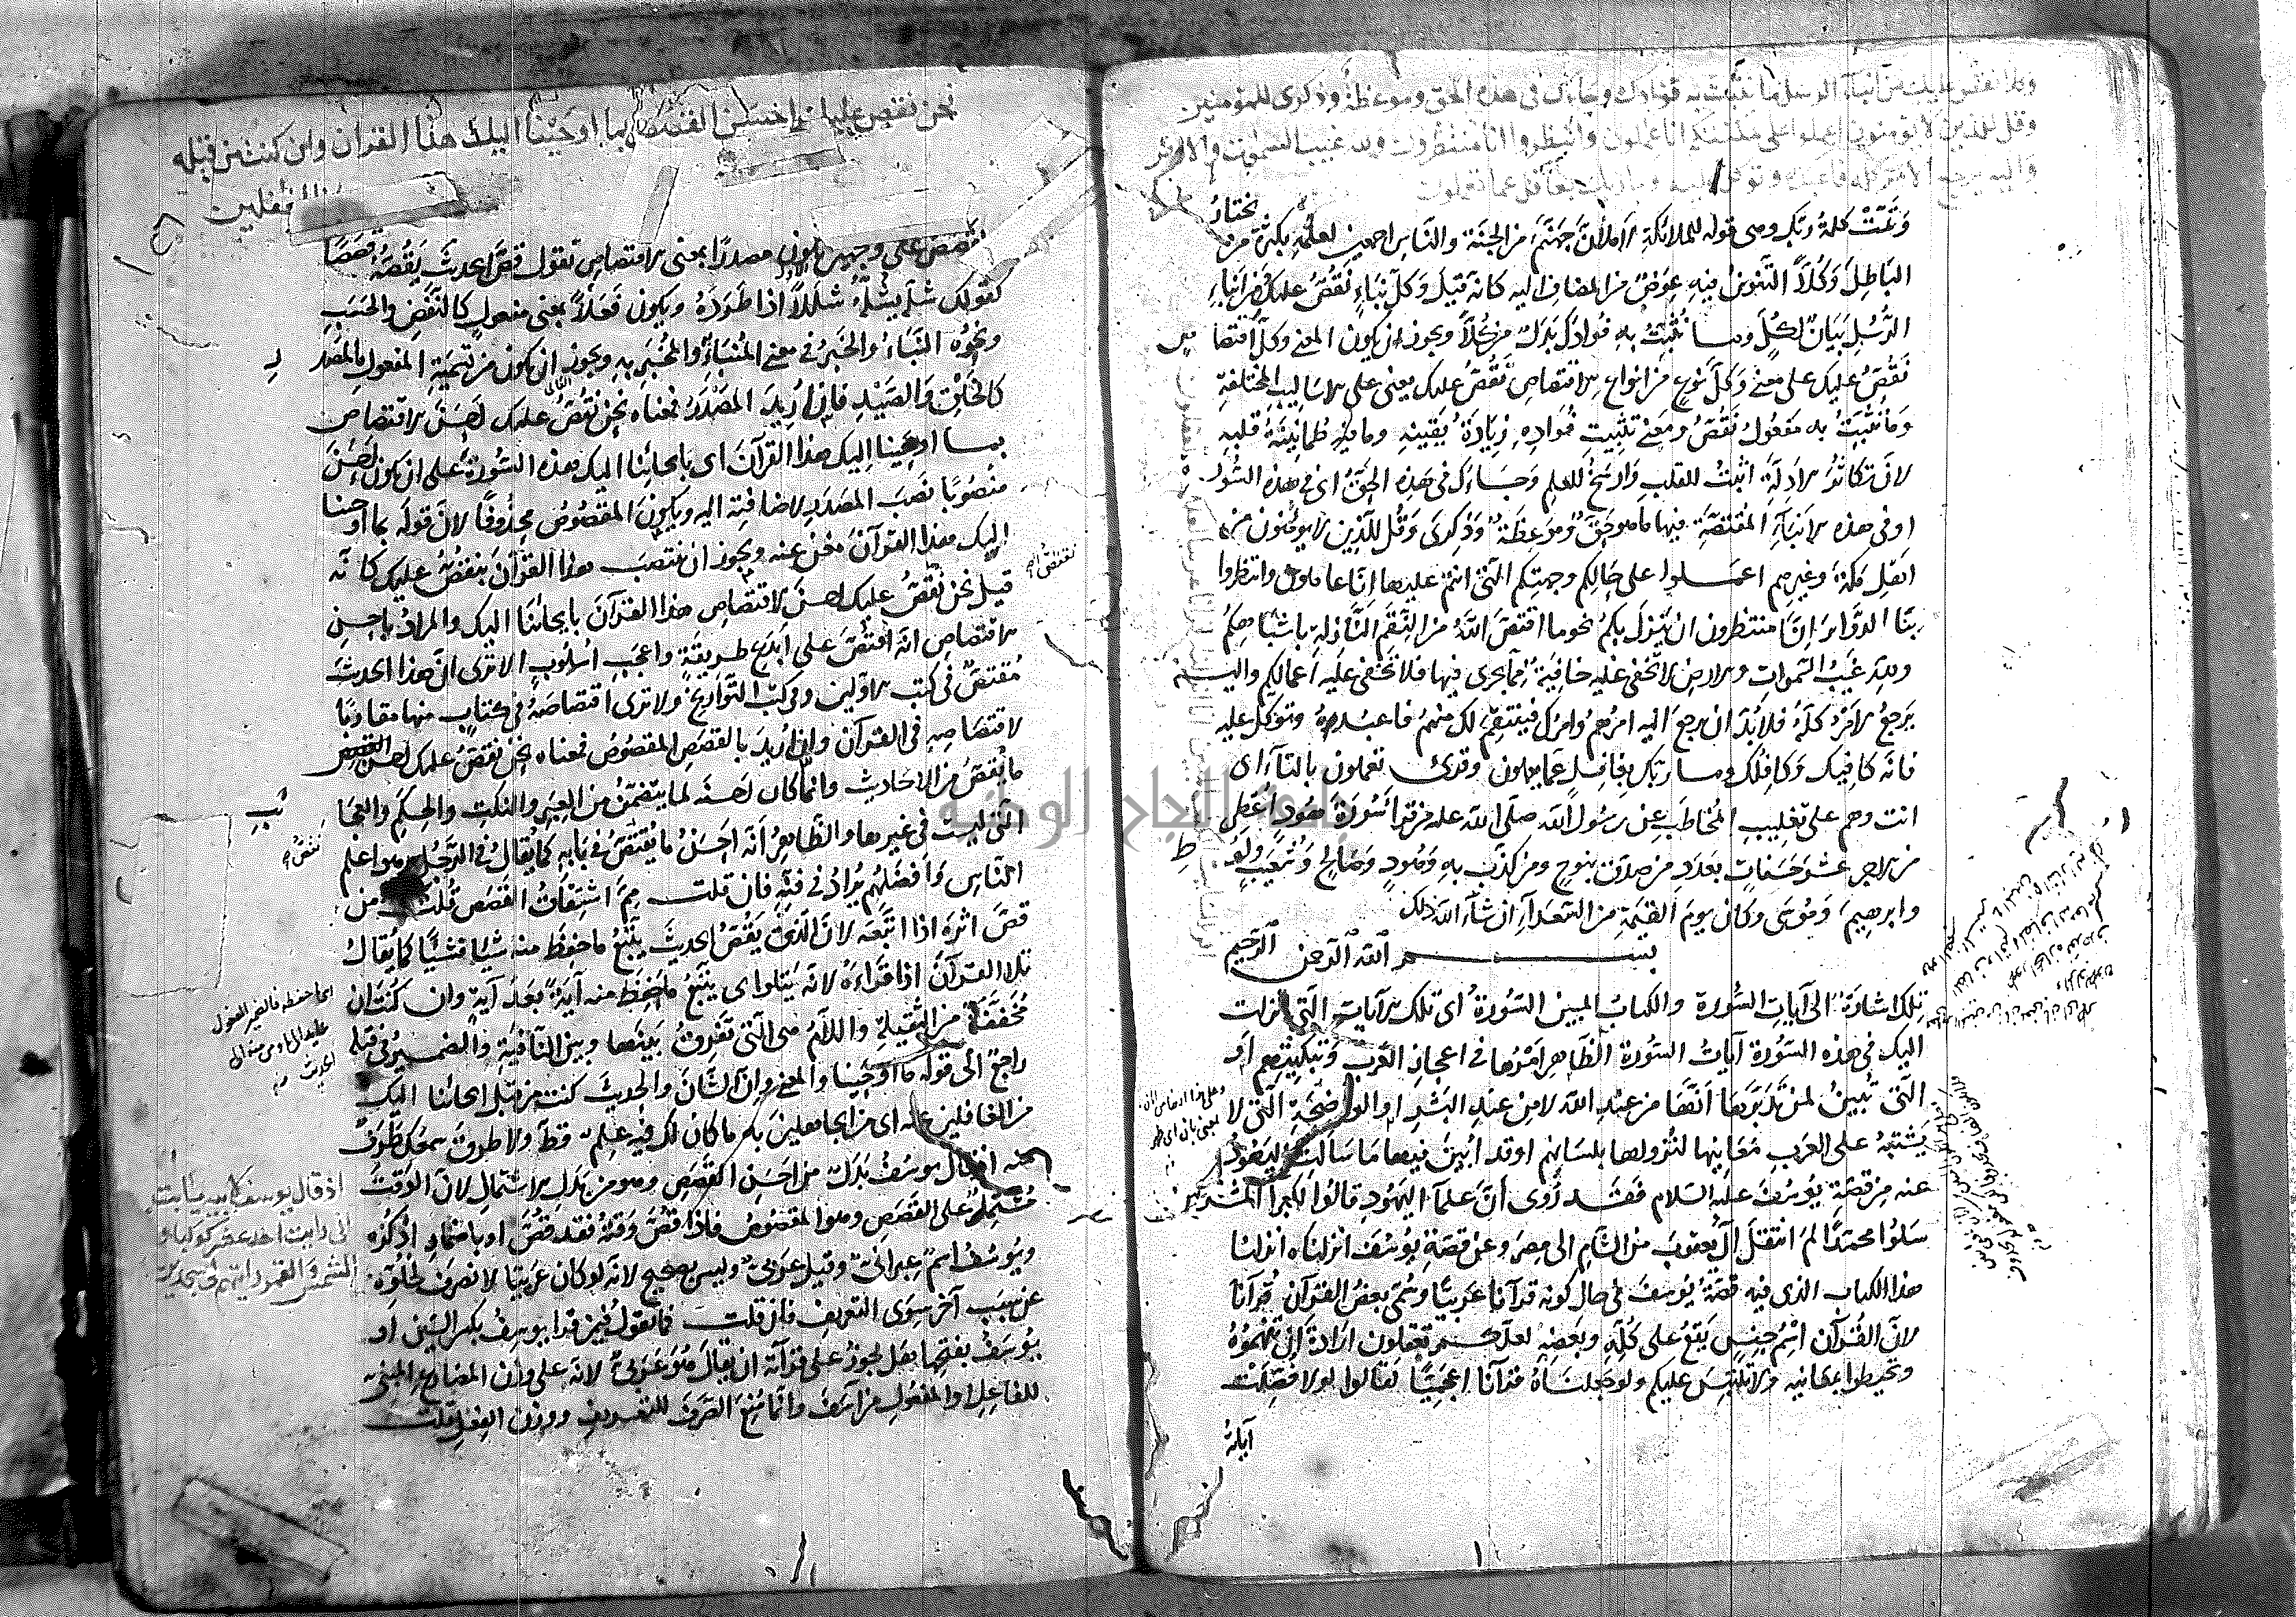 وكلا نقص عليك من أنباء الرسل ما نثبت به فؤادك وجاءك في هذه الحق وموعظة وذكرى للمؤمنين
وقل للذين لا يؤمنون اعملوا على مكانتكم انا عاملون وانتظروا انا منتظرون ولله غيب السموات والارض
واليه يرجع الامر كله فاعبده وتوكل عليه وما ربك بغافل عما تعملون
وَتَمَّتْ كلمةُ ربّك وهي قوله للملائكة لاملأنّ جهنّم من الجنّة والناس اجمعين لعلمه بكثرة من يختارُ
الباطِلَ وَكُلّاً التّنوينُ فيه عِوَضٌ من المضاف اليه كانه قيل وكلّ نباءٍ نَقُصُّ عليك من أنباءِ
الرُّسُلِ بَيَانٌ لكُلٍّ وما نُثَبِّتُ به فُوادَك بَدَلٌ من كُلّاً ويجوز ان يكون المعنى وكلّ اقتصا صٍ
نَقُصُّ عليك على معنى وكلّ نوعٍ من انواع الاقتصاص نَقُصُّ عليك يعنى على الاساليب المختلفة
وَما نُثَبِّتُ به مفعولُ نَقُصُّ ومعنى تثبيتِ فُوادِهِ زِيَادَةُ يَقِينِهِ وما فيه طمانينةُ قلبِه
لانّ تكاثُرَ الادلّةِ اثبتُ للقلب وارسخُ للعلم وَجَاءَكَ في هَذِهِ الحَقُّ اى في هذه السُّورة
او في هذه الانباءِ المُقتَصَّةِ فيها ما هو حَقٌّ وموعظةٌ وذكرى وقُل للّذين لا يؤمنون من
اهل مكّةَ وغيرهم اعملوا على حَالِكم وجهتكم الّتى انتم عليها اِنّا عاملون وانتظروا
بِنَا الدَّوائِرَ اِنّا منتظرون ان يَنزِلَ بكم نحو ما اقتصّ اللّهُ من النِّقَمِ النّازلةِ باشباهِكُم
وللّهِ غَيبُ السّموات والارض لا تخفى عليه خافيةٌ ممّا يجرى فيها فلا تخفى عليه اعمالكم واليه
يرجعُ الامرُ كلّهُ فلا بُدّ ان يرجع اليه امرُهم وامرُك فينتقم لك منهم فاعبُدهُ وتوكّل عليه
فانّه كافيك وكافلك وما ربّك بغافلٍ عمّا يعملون وقرئ تعملون بالتّاءِ اى
انت وهم على تغليبِ المُخاطَب عن رسُول اللّه صلّى اللّه عليه من قرا سُورةَ هُودٍ اُعطِىَ
من الاجر عشرَ حسناتٍ بعدَدِ من صدّق بنوحٍ ومن كذّب به وهودٍ وصالحٍ وشُعَيبٍ ولوطٍ
وابرهيمَ وَمُوسَى وكان يومَ القيٰمة من السُّعداءِ ان شاءَ اللّه ذلك
بســـم اللّه الرّحمن الرّحيم
تِلكَ اشارةٌ الى آياتِ السُّورة والكتابُ المبين السّورةُ اى تلك الآياتُ الّتى اُنزِلت
اليك في هذه السّورة آياتُ السّورة الظّاهِرِ امرُها في اعجاز العرب وتبكيتهم او
الّتى تُبيِنُ لمن تَدَبَّرَها انّها من عندِ اللّه لا من عندِ البشَرِ او الواضحةِ الّتى لا
يَشتبهُ على العَربِ معانيها لنُزولها بلسانهم او قد اُبينَ فيها ما سالت اليَهُودُ
عنه من قصّة يوسُفَ عليه السّلام فقد رُوى اَنّ علماءَ اليَهُودِ قالُوا لكبراءِ المُشركين
سَلُوا محمّداً لِمَ انتقلَ آلُ يعقوبَ من الشّام الى مصرَ وعن قصّةِ يُوسُفَ انزلناه انزلنا
هذا الكتاب الذى فيه قصّةُ يوسُفَ في حال كونه قرآنا عَربيّا وسُمّى بعضُ القرآن قُرآناً
لانّ القُرآن اسمُ جِنسٍ يَقَعُ على كُلِّه وبَعضِه لعلّكم تعقلون ارادةَ ان تفهمُوهُ
وتحيطوا بمعانيه ولا يلتبس عليكم ولو جعلناهُ قرآناً اعجميّا لقالوا لولا فصّلت
آياتُهُ
نحن نقص عليك احسن القصص بما اوحينا اليك هذا القرآن وان كنت من قبله
لمن الغفلين
القَصَص على وجهين يكون مصدرًا بمعنى الاقتصاص تقول قصّ الحديثَ يَقُصّهُ قَصَصًا
كقولك شلّه يشُلُّهُ شلَلاً اذا طَرَدَهُ ويكون فَعَلاً بمعنى مفعولٍ كالنَّفَضِ والحَسَبِ
ونحوُه النّباءُ والخَبرُ في معنى المُنبَاءِ والمُخبَرِ به ويجوز ان يكون من تسميةِ المفعولِ بالمَصدر
كالخَلقِ وَالصّيدِ فان اُرِيدَ المصدَرُ فمعناه نحن نَقُصُّ عليك اَحسَنَ الاقتصاص
بما اوحينا اليك هذا القرآن اى بايحائِنا اليك هذه السّورةَ على ان يكون احسَنَ
منصُوبا نَصبَ المصدر لاضافته اليه ويكونَ المقصُوصُ محذوفًا لانّ قولَه بما اوحينا
اليك هذا القرآنَ مغنٍ عنه ويجوز ان ينتصب هذا القرآن بنقُصُّ عليك كانّه
قيل نحن نَقُصُّ عليك احسنَ الاقتصاص هذا القرآنَ بايحائِنَا اليك والمرادُ باحسنِ
الاقتصاص انّه اقتصّ على اَبدَعِ طريقةٍ واعجبِ اسلُوبٍ الا ترى انّ هذا الحديثَ
مُقتصٌّ في كتب الاوّلين وفى كتب التّواريخ ولا ترى اقتصاصَهُ في كتابٍ منها مقاربًا
لاقتصاصِهِ في القرآن وان اُريدَ بالقصَصِ المقصُوصُ فمعناه نحن نَقُصُّ عليك احسَنَ
ما نَقُصُّ من الاحاديث وانّما كان احسنَ لما يتضمّنُ من العِبَرِ والنُكت والحِكَمِ والعجائبِ
الّتى ليست في غيرها والظّاهِرُ انّه احسَنُ ما يُقتَصّ في بَابِهِ كما يُقالُ في الرّجُل هو اعلم
النّاسِ وافضلُهم يُرادُ في فَنِّهِ فان قلت مِمّ اشتِقاقُ القَصَصِ قُلتُ من
قصّ اثرَهُ اذا اتّبعَه لانّ الّذى يَقُصُّ الحديثَ يتَّبِعُ ما حفِظَ منه شيًا فشيًا كما يُقالُ
تلا القرآنَ اذا قراءَهُ لانّه يَتلوا اى يتّبعُ ما حفِظَ منه آيةً بعدَ آيةٍ وان كُنتَ ان
مُخفّفةٌ من الثّقيلةِ واللّامُ هى الّتى تفرُقُ بينَها وبين النّافيةِ والضّميرُ في قبله
راجعٌ الى قوله ما اوحَينا والمعنى وانّ الشّانَ والحديثَ كنتَ من قبل ايحائنا اليك
من الغافلين عنه اى من الجاهلين به ما كان لك فيه عِلمٌ قطُّ ولا طرق سمعَك طَرَفٌ
منه اذ قال يوسُفُ بدَلٌ من احسَنِ القَصَصِ وهو من بدَلِ الاشتمالِ لانّ الوَقتَ
مُشتملٌ على القَصَصِ وهو المقصُوصُ فاذا قُصَّ وقتُهُ فقد قُصَّ او باضمارِ اذكُر
ويُوسُفُ اسمٌ عِبرانىٌّ وقيل عَربىٌّ وليس بصحيحٍ لانّه لو كان عَربيّا لانصرَفَ لخُلُوِّه
عن سبَبٍ آخرَ سِوَى التّعريف فان قلت فما تقولُ فيمن قرا يوسِفُ بكسر السّين او
يُوسَفُ بفتحها هل يجوزُ على قرآته ان يقالَ هُوَ عَرَبىٌّ لانّه على وزن المضارع المبنىِّ
للفاعِلِ او المفعُول من آسَفَ وانّما مُنِعَ الصّرفَ للتعريف ووزن الفعل قلت
اى ما حفظه فالضمير المفعول
اذ قال يوسف لابيه يا ابت
انى رايت احد عشر كوكبا و
الشمس والقمر رايتهم لى سجدين
جامعة النجاح الوطنية